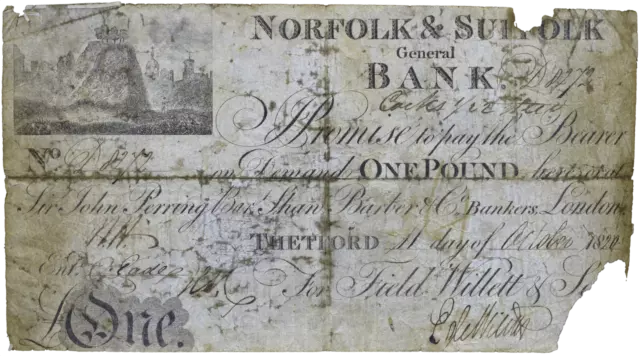 NORFOLK & SUFFOLK
General
BANK. D 4272
Promise to pay the Bearer
No D 4272 on Demand ONE POUND here or at
Sir John Perring Bart. Shaw Barber & Co. Bankers London
THETFORD 11 day of October 1820
Ent. For Field Willett & S
£ One.